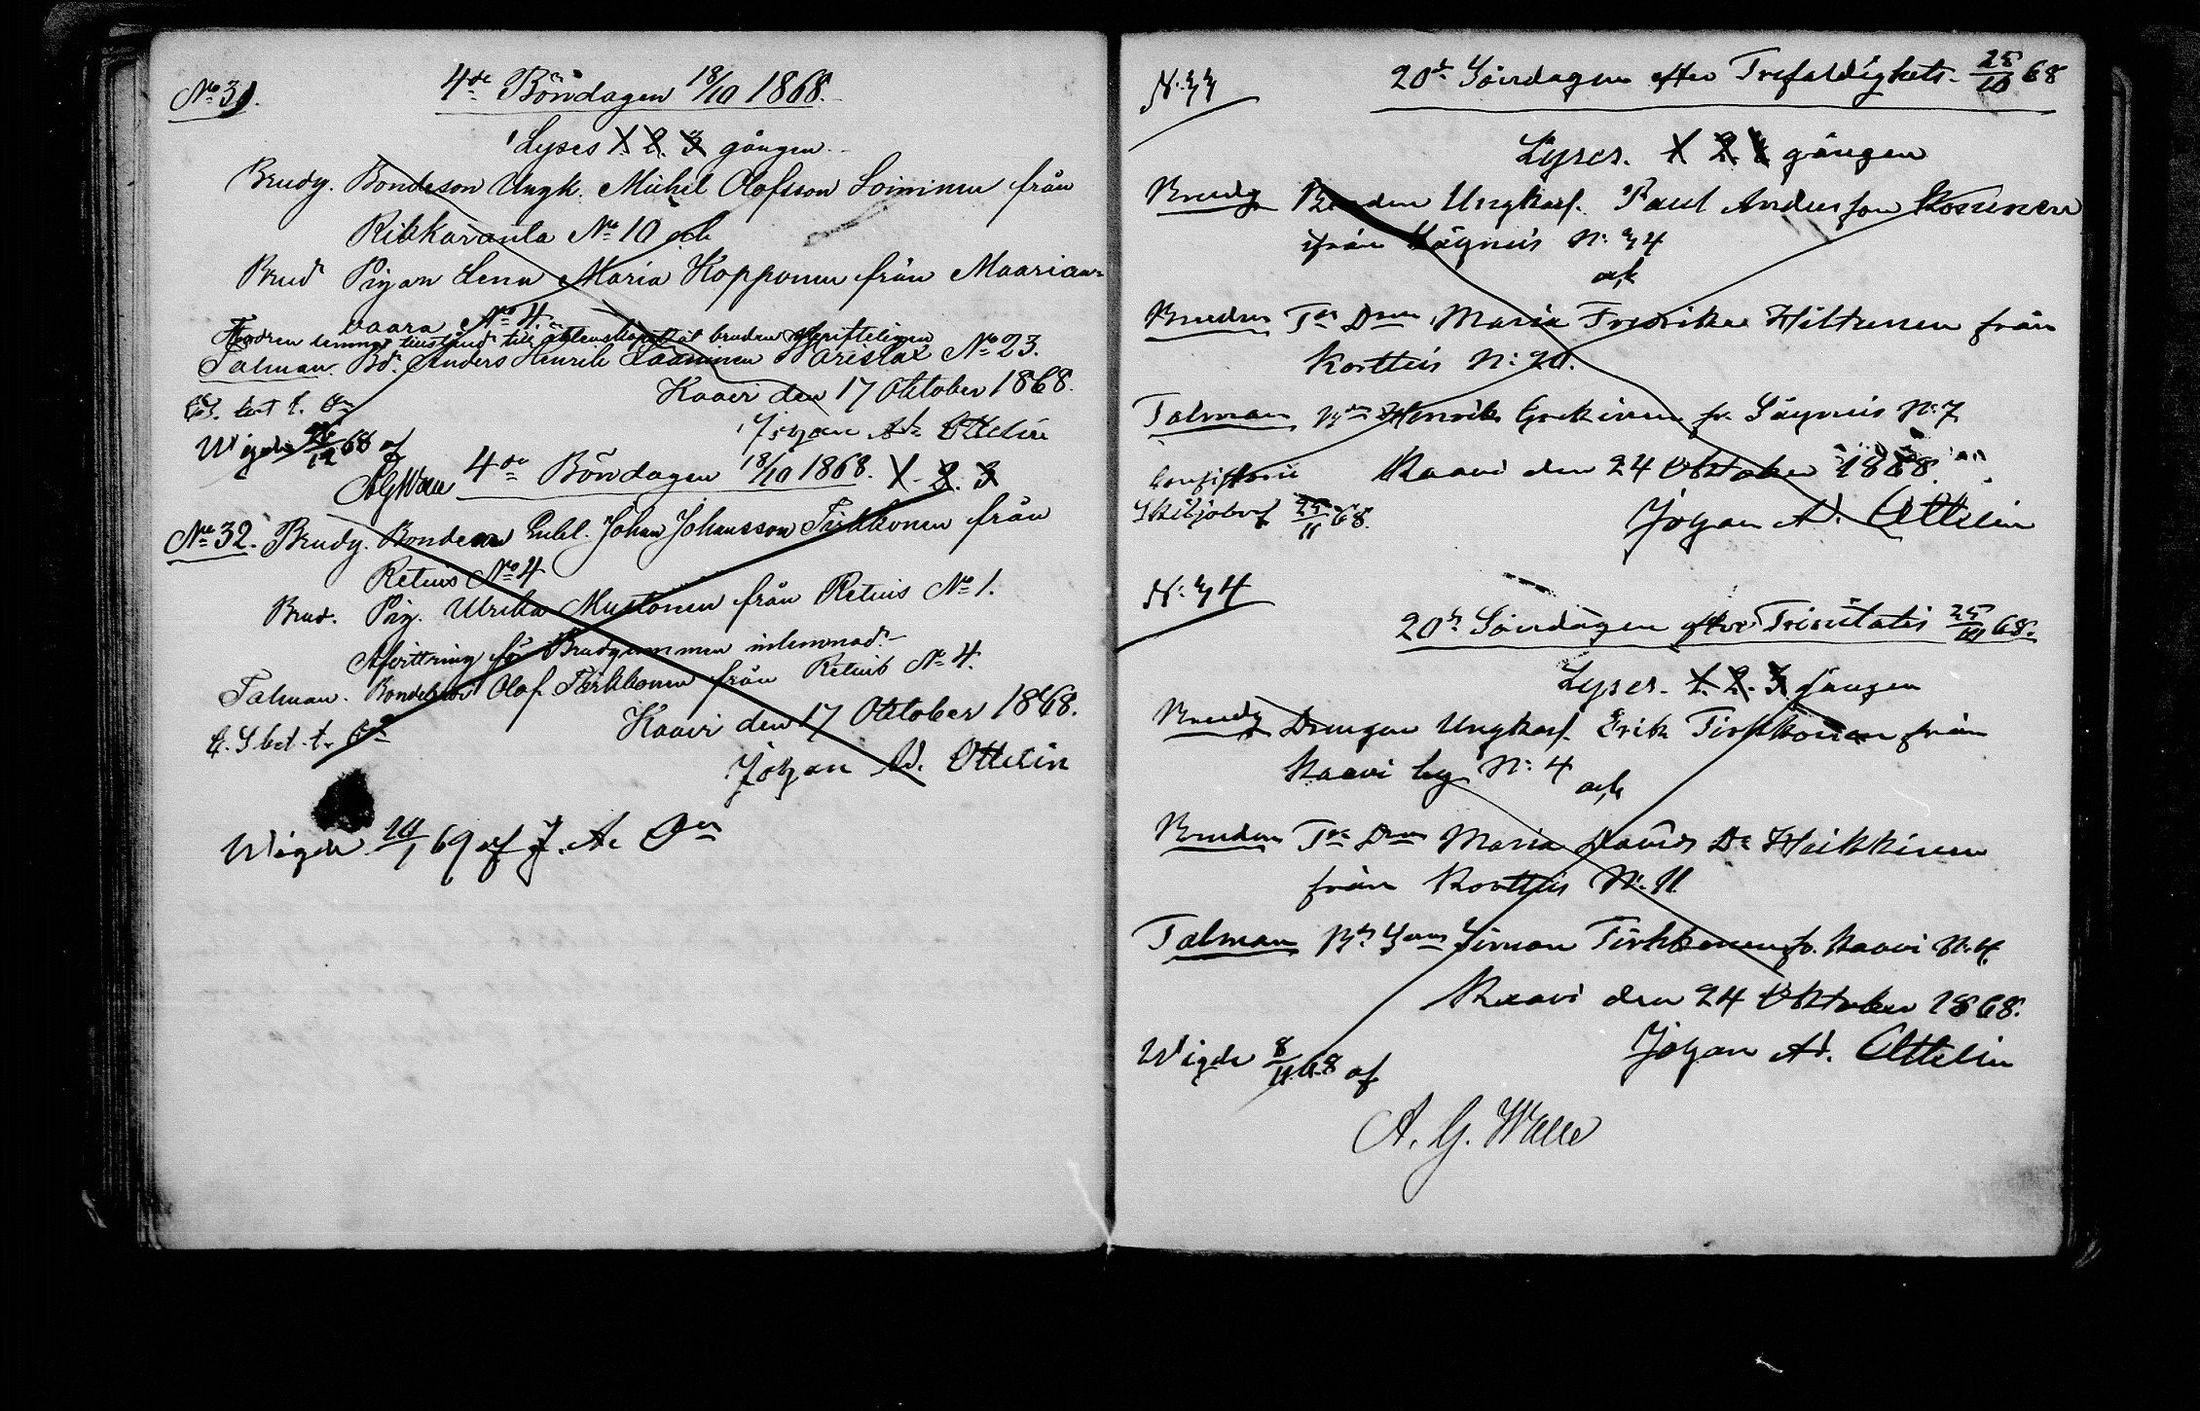 No 31.
4de Böndagen 18/10 1868.
Lyses 1. 2. 3 gången
Brudg. Bondeson Ungk. Michel Olofsson Soininen från
Riikkaranta No 10 och
Brud Pigan Lena Maria Kopponen från Maarian-
vaara No 4.
lemnar tillstånd till äktenskapet åt bruden skrifteligen
Talman. Bd. Anders Henrik Laaninen Niristax No 23.
Kaavi den 17 Oktober 1868.
Johan Ad. Ottelin
Wigde /12 68 af
AGWalle
4de Böndagen 18/10 1868. 1. 2. 3
No 32. Brudg. Bonden Enkl. Johan Johansson Tirkkonen från
Retuis No 4
Brud. Pig. Ulrika Mustonen från Retuis No 1.
Afvittring för Brudgummen inlemnad.
Talman. Bondeson Olof Tirkkonen från Retuis No 4.
Kaavi den 17 Oktober 1868.
Johan Ad. Ottelin
Wigde 10/1 69 af J. A. On
N: 33
20de Söndagen efter Trefaldighets. 25/10 68
Lyses. 1 2. 3 gången
Brudg Bonden Ungkarl. Paul Andersson Kosunen
från Sägneis N: 34
och
Bruden Tor Dron Maria Fredrika Hiltunen från
Kortteis N: 20.
Talman Bdn Henrik fr Sägneis N: 7
Kaavi den 24 Oktober 1868.
Consistorii
Skiljobref 25/11 68.
Johan Ad. Ottelin
N: 34
20de Söndagen efter Trinitatis 25/10 68.
Lyses. 1. 2. 3. gången
Brudg Drängen Ungkarl. Erik Tirkkonen från
Kaavi by N: 4
och
Bruden Tor Dron Maria Davids Dr Heikkinen
från Kortteis N: 11
Talman Simon Tirkkonen fr. Kaavi N: 4.
Kaavi den 24 Oktober 1868.
Johan Ad. Ottelin
Wigde 8/11 68 af
A. G. Walle